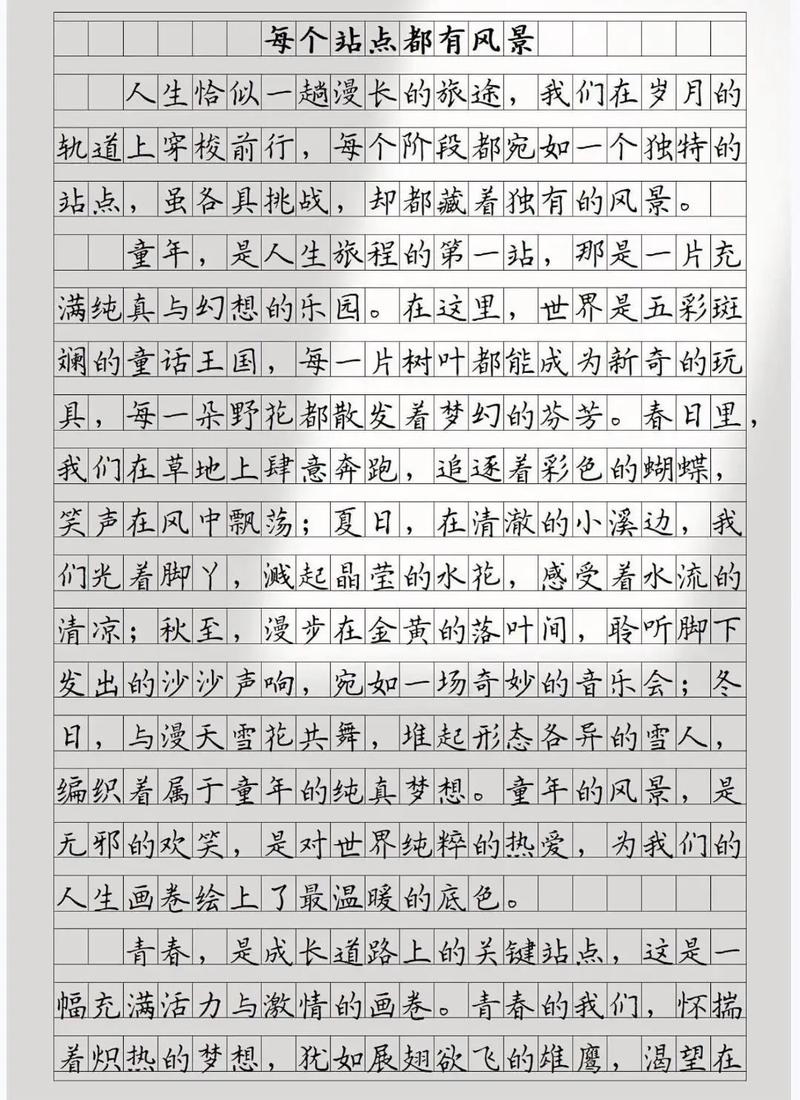 每个站点都有风景
人生恰似一趟漫长的旅途，我们在岁月的
轨道上穿梭前行，每个阶段都宛如一个独特的
站点，虽各具挑战，却都藏着独有的风景。
童年，是人生旅程的第一站，那是一片充
满纯真与幻想的乐园。在这里，世界是五彩斑
斓的童话王国，每一片树叶都能成为新奇的玩
具，每一朵野花都散发着梦幻的芬芳。春日里，
我们在草地上肆意奔跑，追逐着彩色的蝴蝶，
笑声在风中飘荡；夏日，在清澈的小溪边，我
们光着脚丫，溅起晶莹的水花，感受着水流的
清凉；秋至，漫步在金黄的落叶间，聆听脚下
发出的沙沙声响，宛如一场奇妙的音乐会；冬
日，与漫天雪花共舞，堆起形态各异的雪人，
编织着属于童年的纯真梦想。童年的风景，是
无邪的欢笑，是对世界纯粹的热爱，为我们的
人生画卷绘上了最温暖的底色。
青春，是成长道路上的关键站点，这是一
幅充满活力与激情的画卷。青春的我们，怀揣
着炽热的梦想，犹如展翅欲飞的雄鹰，渴望在